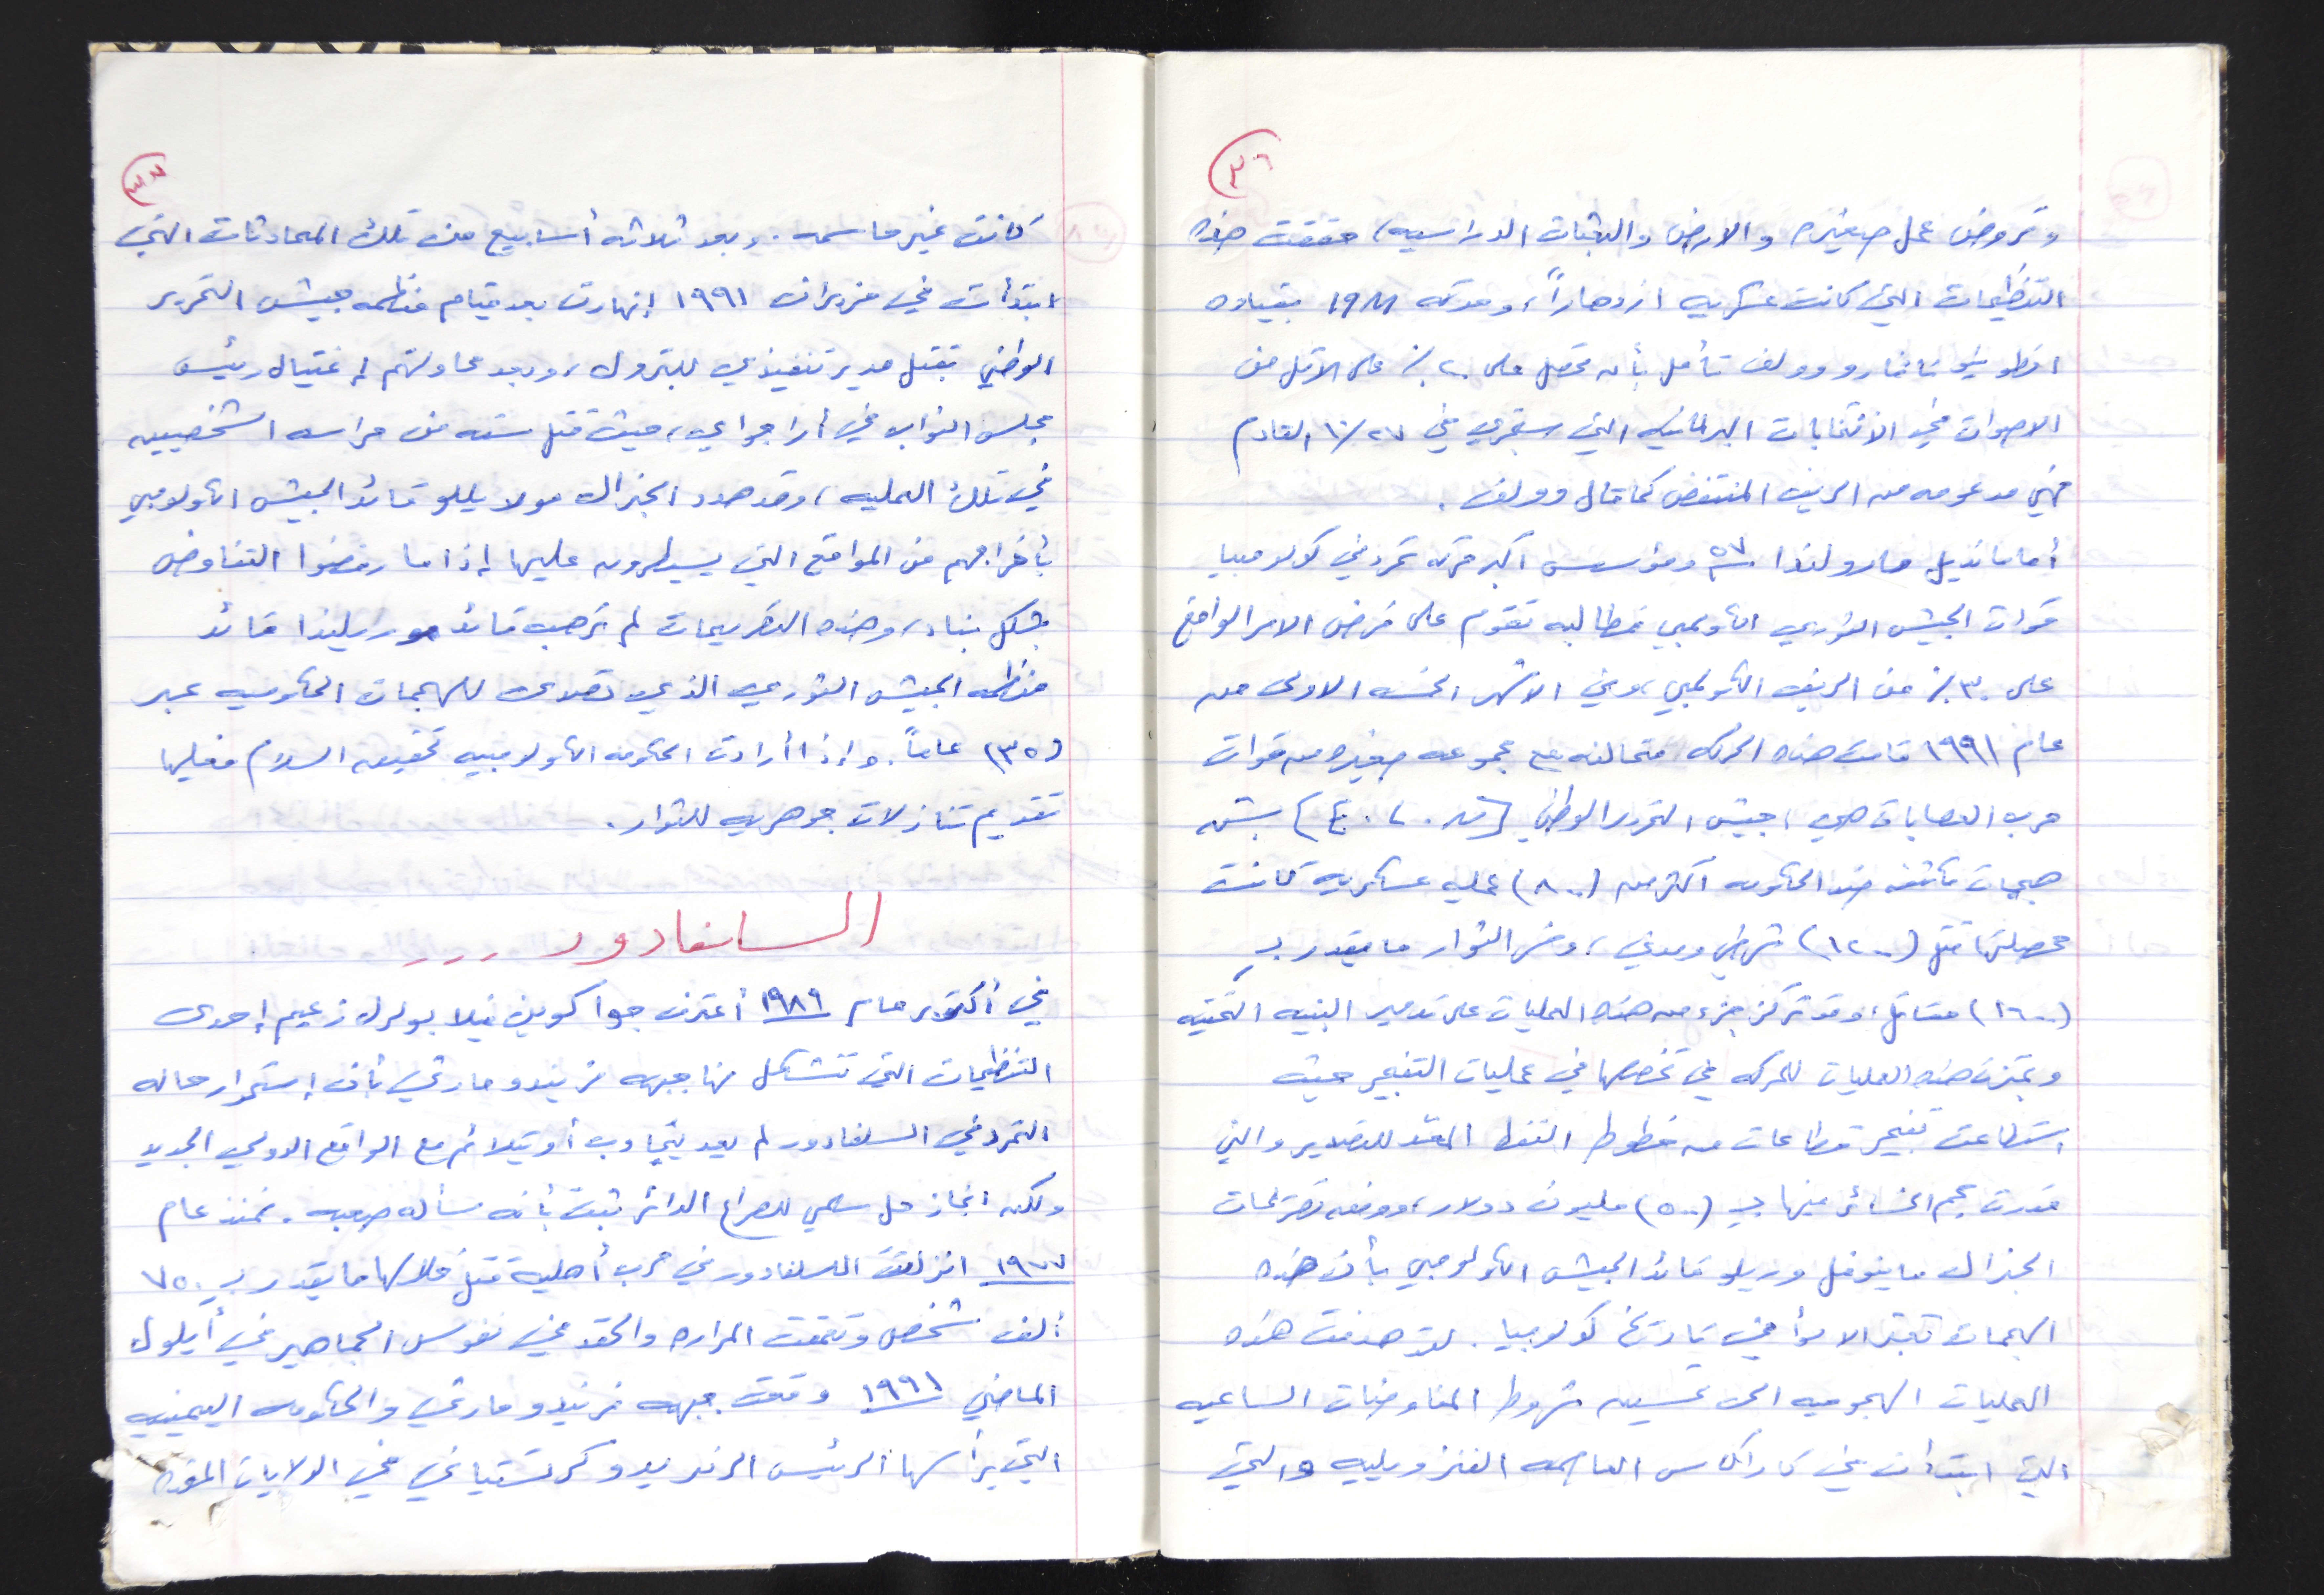 ٣٦
وقروض عمل صغيره والارض والبعثات الدراسيه، حققت هذه
التنظيمات التي كانت عسكريه ازدهاراً، وحركه ١٩M بقياده
انطونيو نافارو وولف تأمل بأن تحصل على ٢٠٪ على الاقل من
الاصوات في الانتخابات البرلمانيه التي ستجري في ٢٧/١٠ القادم
فهي مدعومه من الريف المنتفض كما قال وولف .
أما مانديل مارولندا ومؤسس اكبر حركه تمرد في كولومبيا
قوات الجيش الثوري الكولمبي فمطالبه تقوم على فرض الامر الواقع
على ٣٠٪ من الريف الكولمبي، وفي الاشهر الخمسه الاولى من
عام ١٩٩١ قامت هذه الحركه متحالفه مع مجموعه صغيره من قوات
حرب العصابات هي، جيش التحرر الوطني بشن
هجمات مكثفه ضد الحكومه اكثر من (٨٠٠) عمليه عسكريه كانت
محصلتها قتل (١٢٠٠) شرطي ومدني، ومن الثوار ما يقدر بـ
(١٦٠٠) مقاتل، وقد تركز جزء من هذه العمليات على تدمير البنيه التحتيه
وتميزت هذه العمليات للحركه في تخصصها في عمليات التفجير حيث
استطاعت تفجير قطاعات من خطوط النفط المعد للتصدير والتي
قدرت حجم الخسائر فيها بـ (٥٠٠) مليون دولار، ووفقه تصريحات
الجنرال ماينوفل وريلو قائد الجيش الكولومبي بأن هذه
الهجمات تعتبر الاسوأ في تاريخ كولومبيا . لقد هدفت هذه
العمليات الهجوميه الى تحسين شروط المفاوضات الساعيه
التي ابتدأت في كاراكاس العاصمه الفنزويليه والتي
٣٧
كانت غير حاسمه . وبعد ثلاثه أسابيع من تلك المحادثات التي
ابتدأت في حزيران ١٩٩١ إنهارت بعد قيام منظمه جيش التحرير
الوطني بقتل مدير تنفيذي للبترول، وبعد محاولتهم لإغتيال رئيس
مجلس النواب في أراجواي، حيث قتل سته من حراسه الشخصيين
في تلك العمليه، وقد هدد الجنرال مولا يللو قائد الجيش الكولومبي
بأخراجهم من المواقع التي يسيطرون عليها إذا ما رفضوا التفاوض
بشكل بناء، وهذه التصريحات لم ترهب قائد مورايلندا قائد
منظمه الجيش الثوري الذي تصدى للهجمات الحكوميه عبر
(٣٥) عاماً . وإذا أرادت الحكومه الكولامبيه تحقيق السلام فعليها
تقديم تنازلات جوهريه للثوار .
السلفادور ...
في أكتوبر عام ١٩٨٩ أعترف جواكوين فيلا بولرك زعيم إحدى
التنظيمات التي تتشكل منها جبهه فرندو مارتي بأن إستمرار حاله
التمرد في السلفادور لم يعد يتجاوب أو يتلائم مع الواقع الدولي الجديد
ولكن انجاز حل سلمي للصراع الدائر ثبت بأنه مسأله صعبه . فمنذ عام
١٩٧٧ انزلقت السلفادور في حرب أهلية قتل خلالها ما يقدر بـ ٧٥٠
ألف شخص وتعمقت المراره والحقد في نفوس الجماهير في أيلول
الماضي ١٩٩١ وقعت جبهه فرنيدو مارتي والحكومه اليمينيه
التي يرأسها الرئيس الرفريدو كرستياني في الولايات المتحده